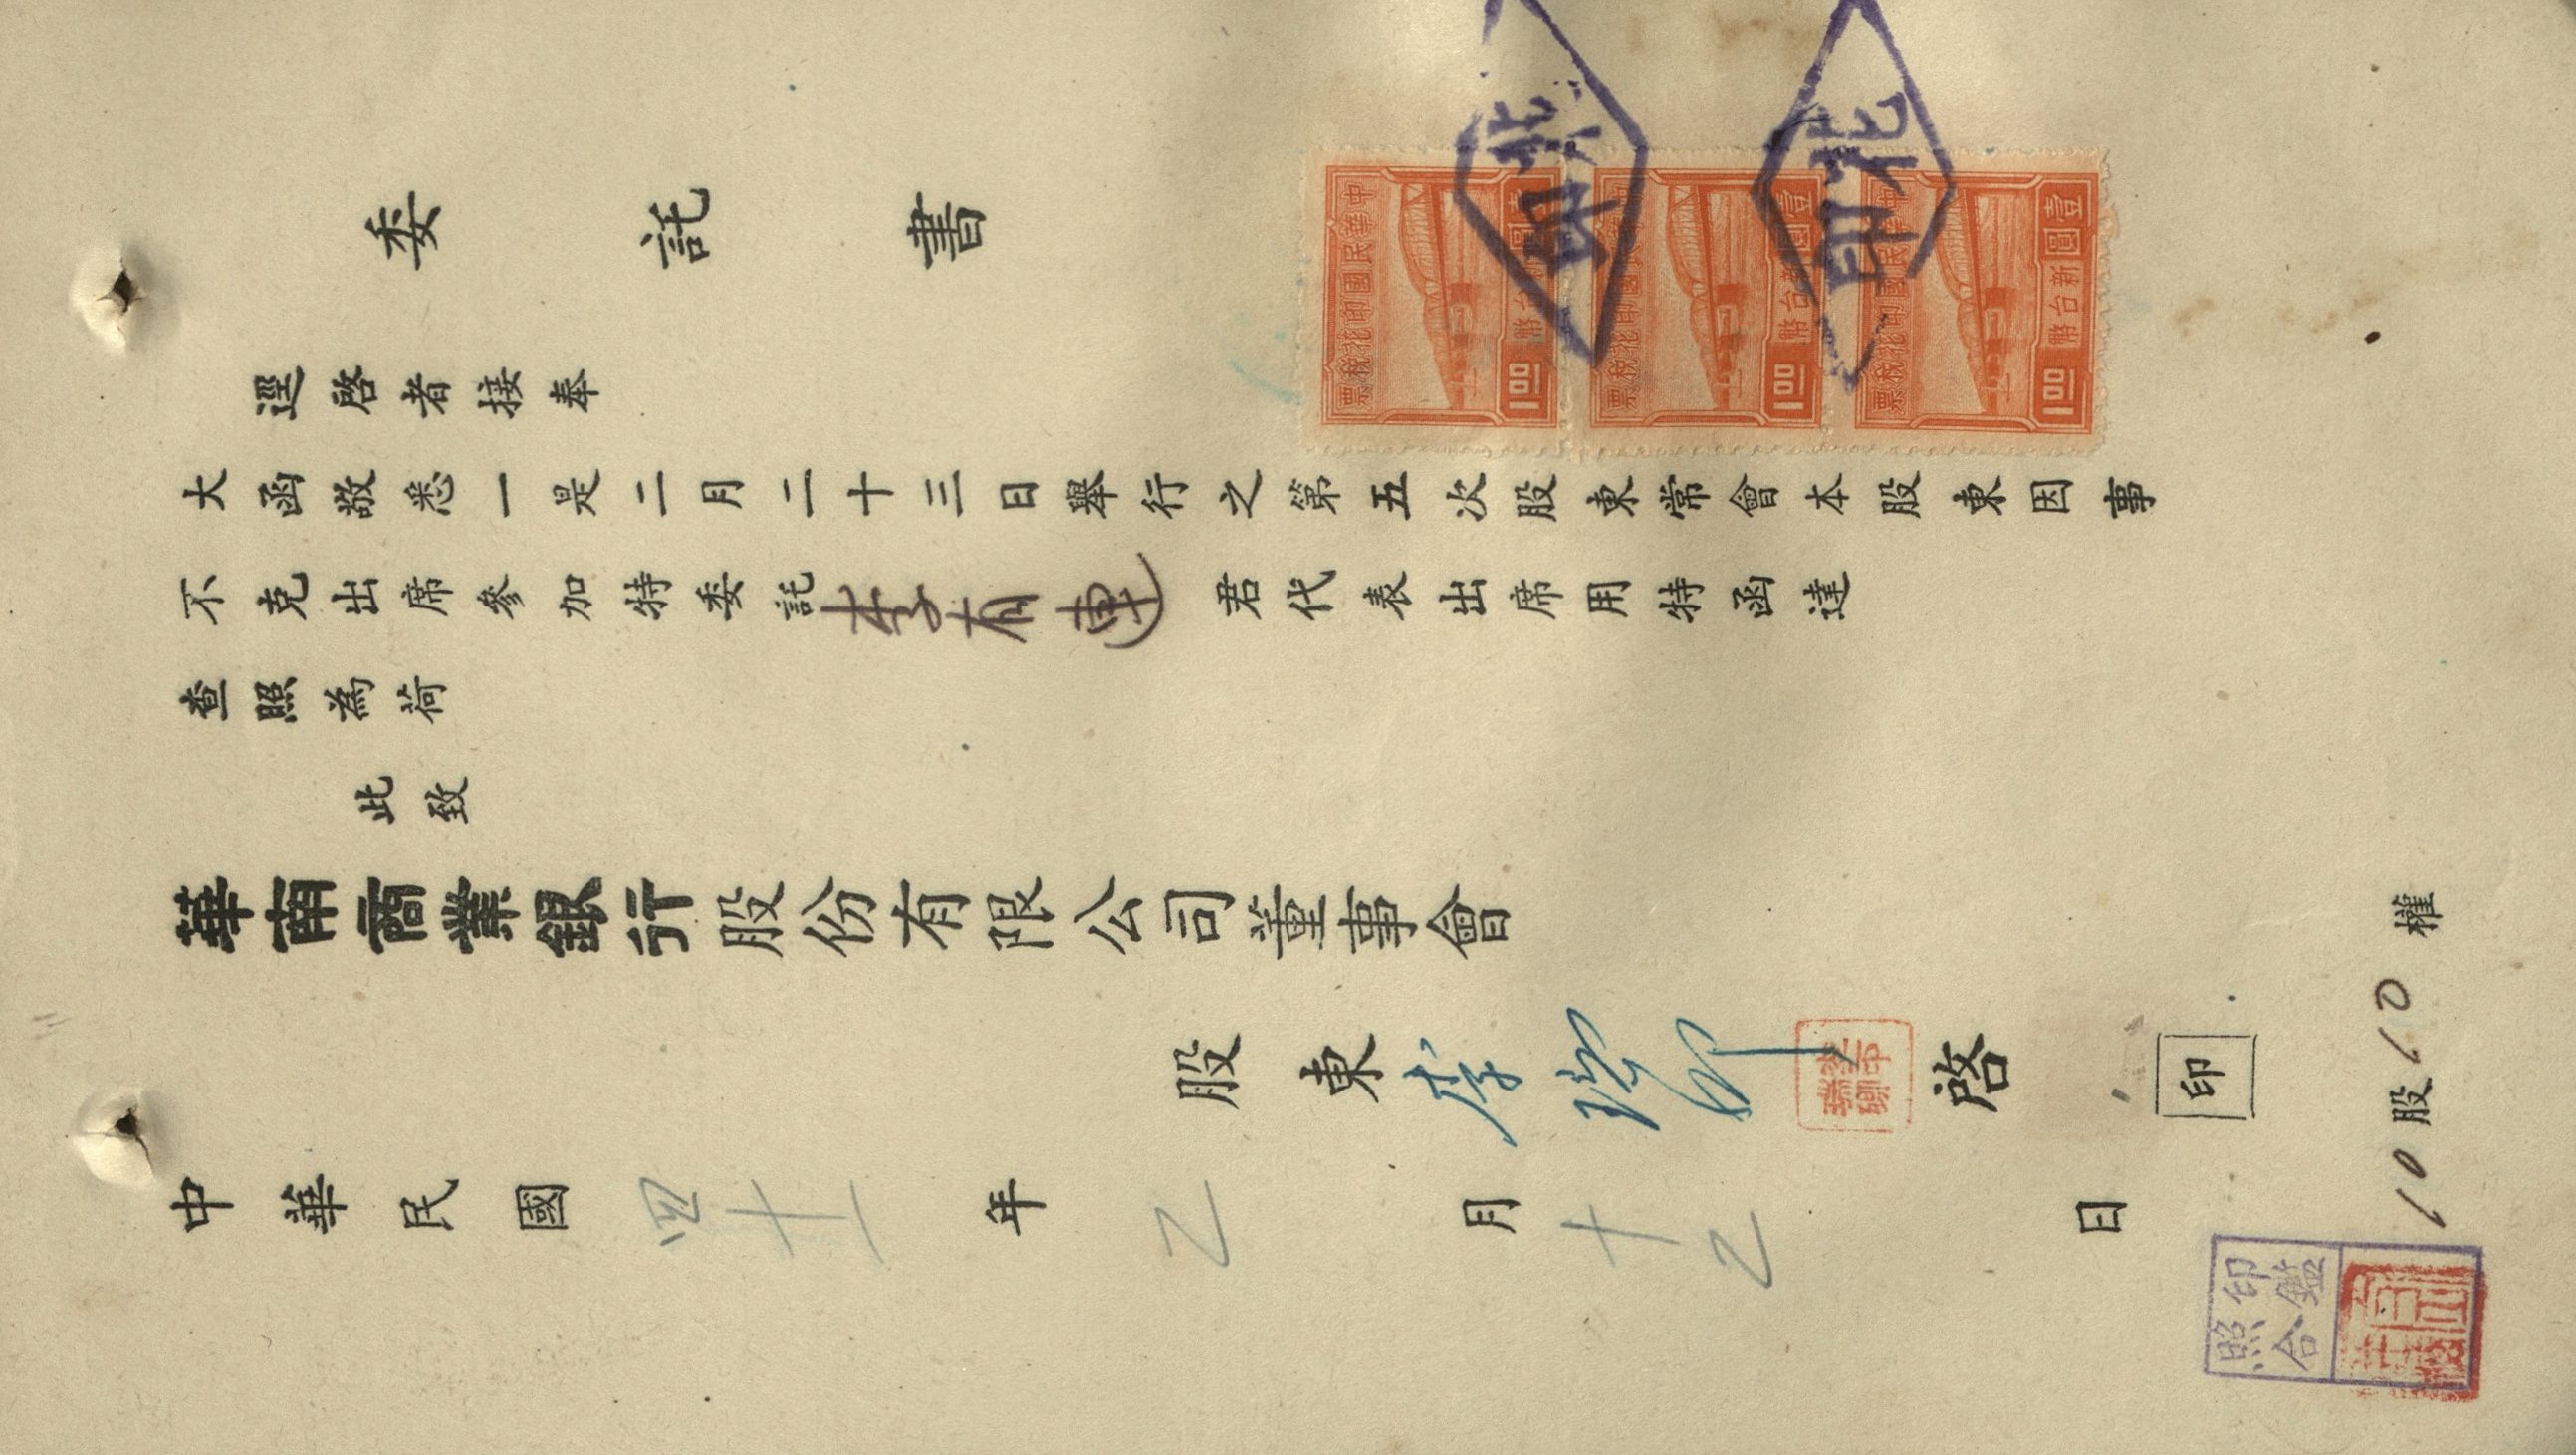 委託書
逕啓者接奉
大函敬悉一是二月二十三日舉行之第五次股東常會本股東因事
不克出席參加特委託李有連君代表出席用特函達
查照為荷
此致
華南商業銀行股份有限公司董事會
股東李瑞卿啓
印
中華民國四十一年乙月十乙日
10股10權
中華民國印花稅票
壹圓
新台幣
1.00
中華民國印花稅票
壹圓
新台幣
1.00
中華民國印花稅票
壹圓
新台幣
1.00
印花
印花
印鑑
照合